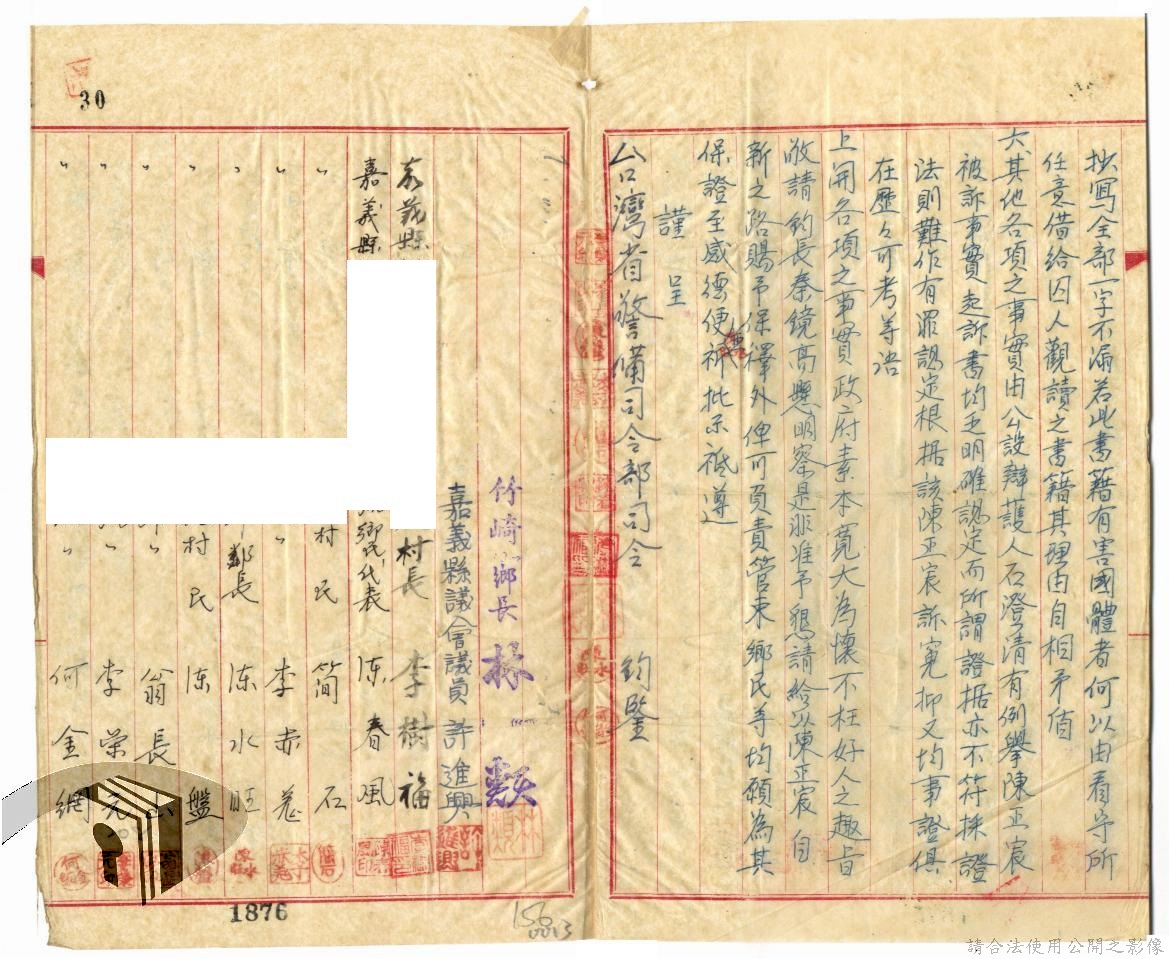 抄寫全部一字不漏若此書籍有害國體者何以由看守所
任意借給囚人觀讀之書籍其理由自相矛盾
六、其他各項之事實由公設辯護人石澄清有例舉陳正宸
被訴事實起訴書均乏明確認定而所謂證据亦不符採證
法則難作有罪認定根据該陳正宸訴寃抑又均事證俱
在歷々可考等语
上開各項之事實政府素本寬大為懷不枉好人之趣旨
敬請鈞長秦鏡高懸明察是非准予懇請給以陳正宸自
新之路賜予保釋外俾可負責管束鄉民等均願為其
保證至感德便祈批示祗遵
謹呈
台灣省警備司令部司令 鈞鑒
竹崎鄉長 林
嘉義縣議會議員 許進興
嘉義縣 村長 李樹福
嘉義縣 鄉民代表 陈春風
〃 村民 简石
〃 〃 李赤
〃 鄰長 陈水旺
〃 村民 陈盤
〃 〃 翁長
〃 〃 李荣元
〃 〃 何金網
30
1876
156
0013
請合法使用公開之影像